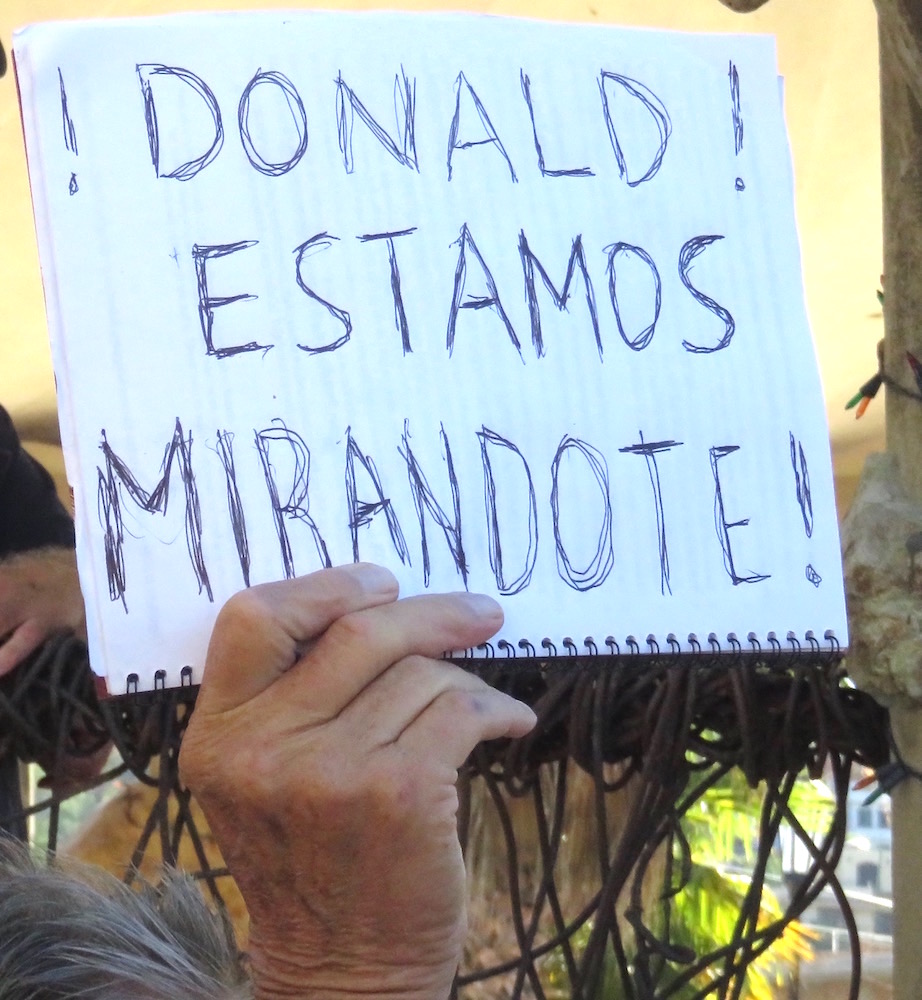 ! DONALD !
ESTAMOS
MIRANDOTE !